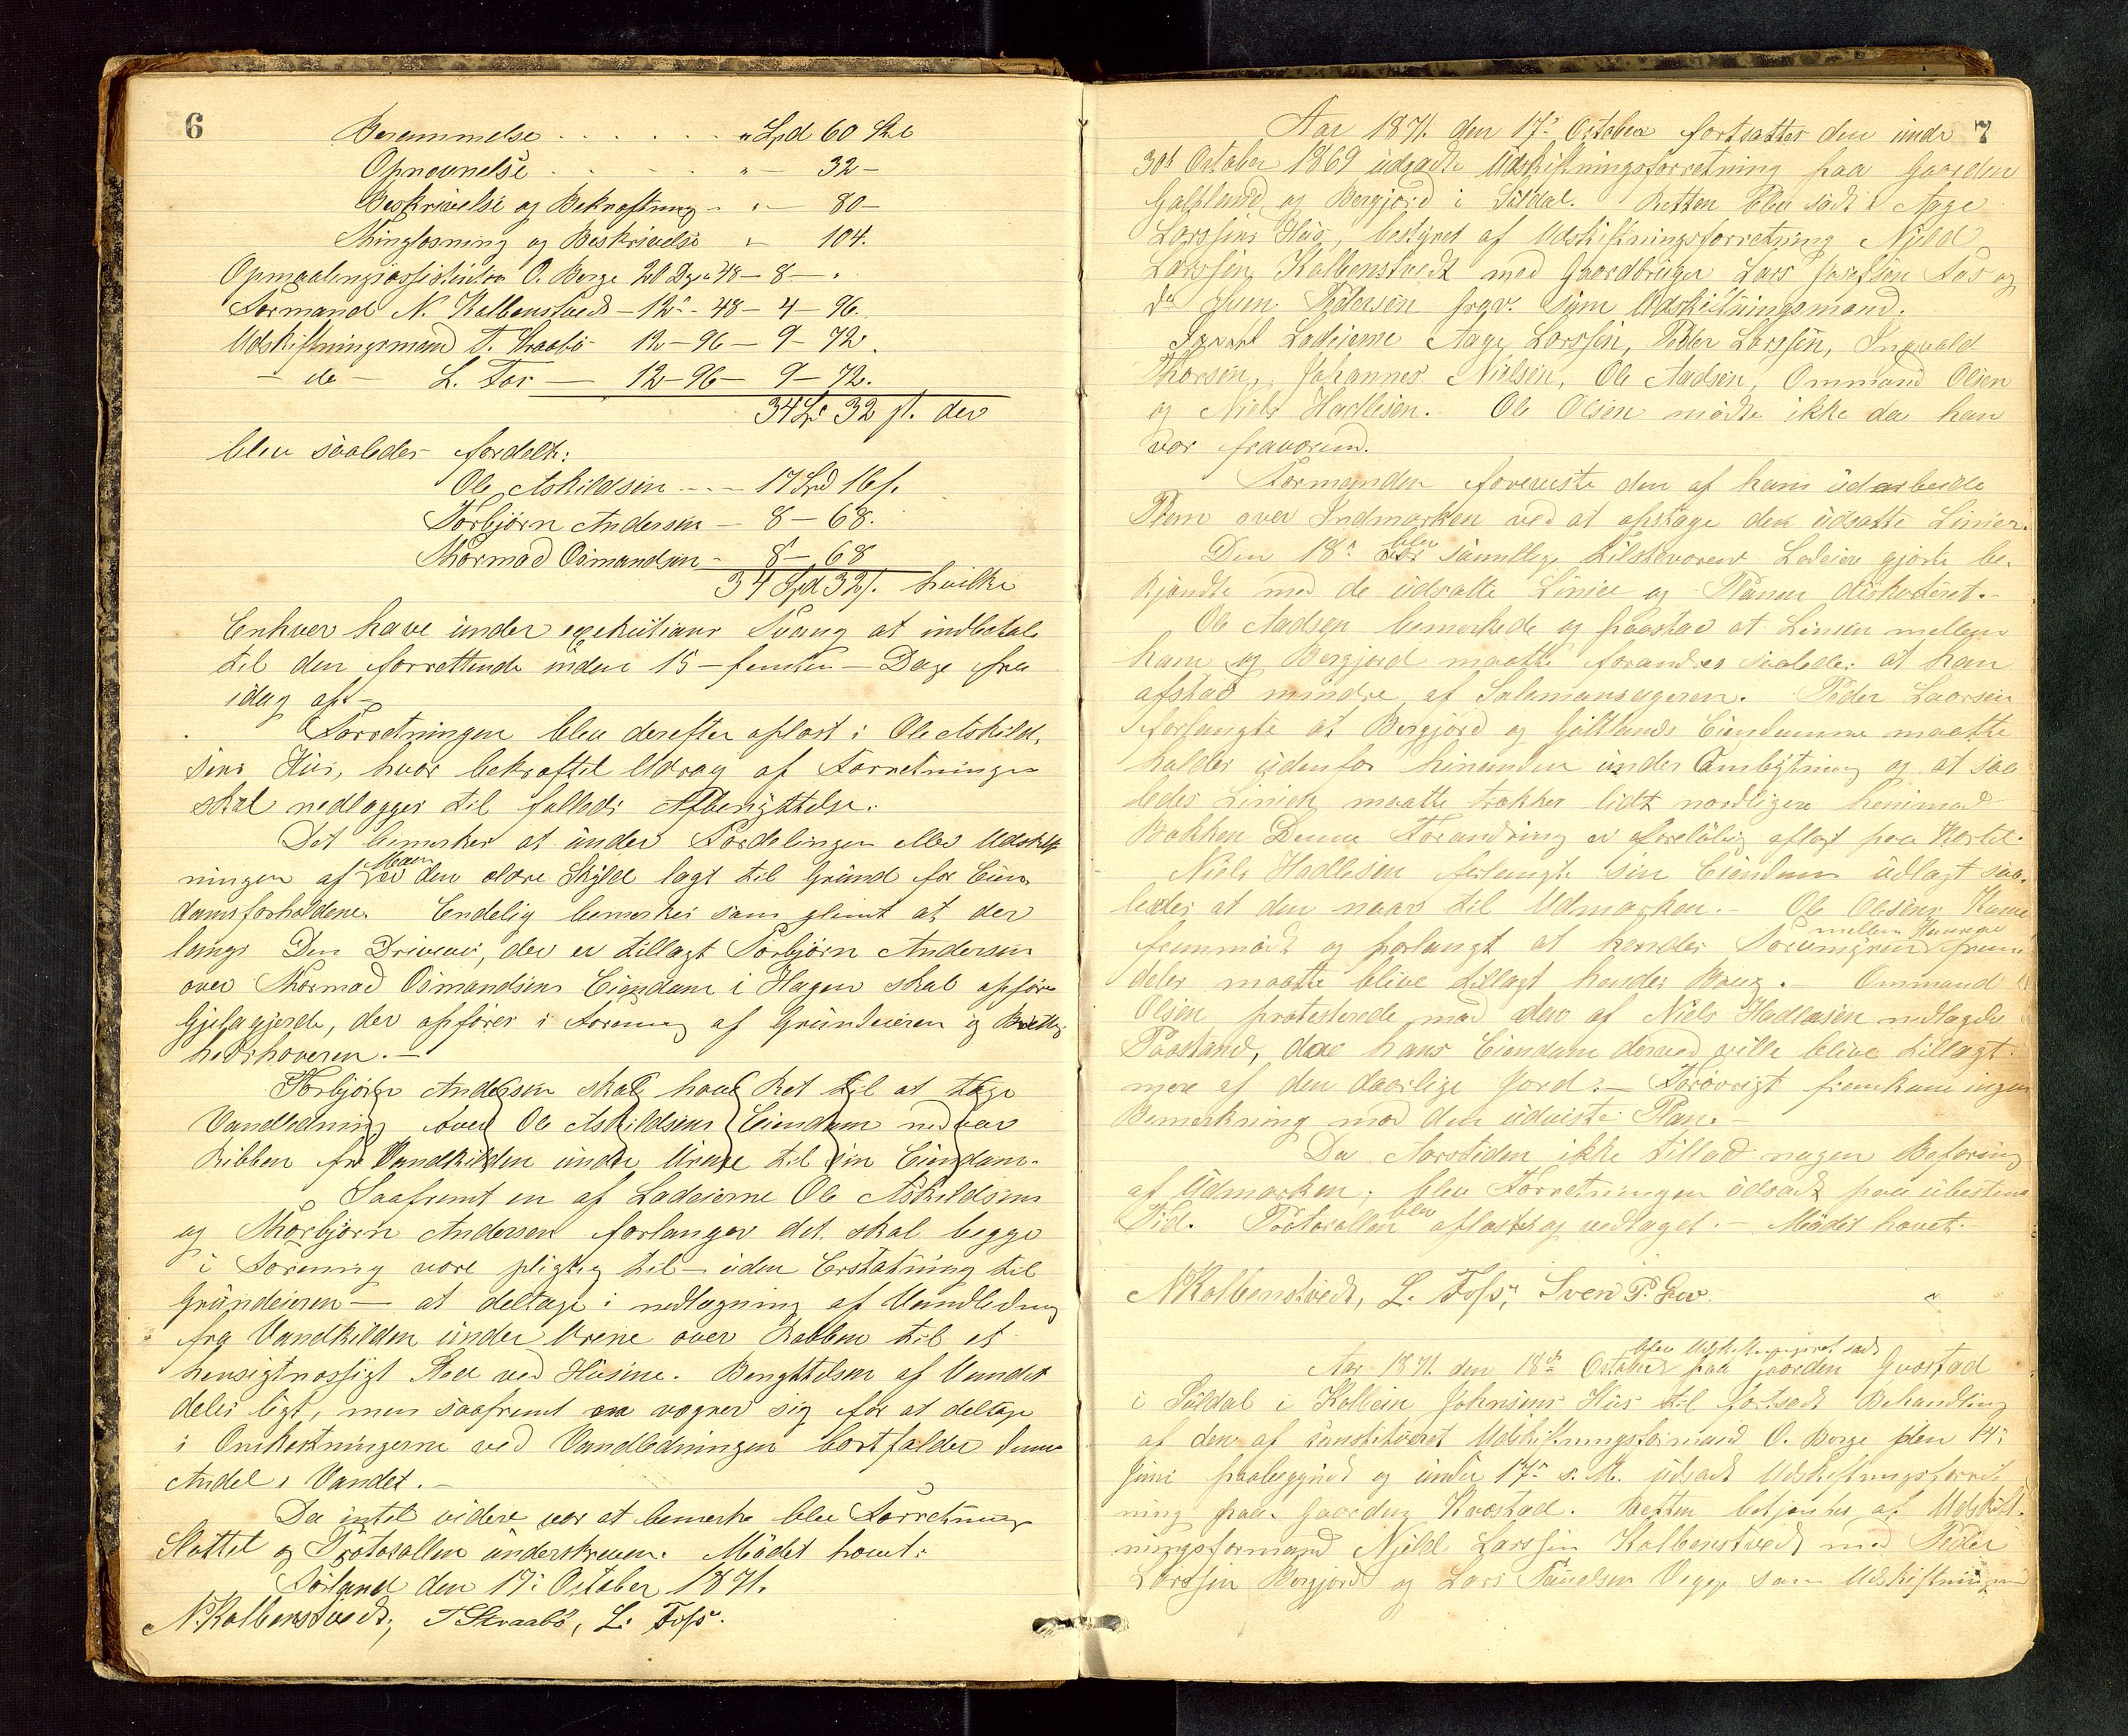 6
Berammelse . . . . . . " Spd 60 Skl
Opnævnelse . . . . . " — 32 —
Beskrivelse og Bekræftning - " — 80 —
Thinglæsning og Beskrivelse " — 104.
Opmaalingsassistenten O. Berge 20 Dge 48 — 8 — "
Formand N. Kolbenstvedt — 12 " - 48 — 4 — 96.
Udskiftningsmand T. Straabø 12 — 96 — 9 — 72.
— do — L. Fos — 12 — 96 — 9 — 72.
34 Sp 32 ſ. der
blev saaledes fordelt:
Ole Askildsen . . — 17 Spd 16 ſ.
Torbjørn Andersen — 8 — 68.
Thormod Osmundsen - 8 — 68
34 Spd 32 ſ. hvilke
Enhver have under exekutions Tvang at indbetale
til den forrettende inden 15 — femten — Dage fra
idag af. —
Forretningen blev derefter oplæst i Ole Askild,
sens Hus, hvor bekræftet Udrag af Forretningen
skal nedlægges til fælleds Afbenyttelse.
Det bemerkes at under Fordelingen eller Udskift
ningen af Marken er den ældre Skyld lagt til Grund for Eien
domsforholdene. Endelig bemerkes at der
langs Den Driftevei, der er tillagt Torbjørn Andersen
over Thormod Osmundsens Eiendom i Hagen skal opføres
Gjelagjerde, der opføres i Forening af Grundeieren og Rettig,
hedshaveren. —
Torbjørn Andersen skal have Ret til at tage
Vandledning over Ole Askildsens Eiendom nedover
Ribben fra Vandkilden under Urene til sin Eiendom.
Saafremt en af Lodeierne Ole Askildsen
og Thorbjørn Andersen forlanger det, skal begge
i Forening være pligtig til — uden Erstatning til
Grundeieren — at deltage i nedlægning af Vandledning
fra Vandkilden under Urene over Rabben til et
hensigtmæssigt Sted ved Husene. Benyttelsen af Vandet
deles ligt, men saafremt en vægrer sig for at deltage
i Omkostningerne ved Vandledningen bortfalder denne
Andel i Vandet. —
Da intet videre var at bemerke blev Forretningen
Sluttet og Protocollen underskreven. Mødet hævet.
Førland den 17: October 1871.
N. Kolbenstvedt, T. Straabø, L. Foss.
7
Aar 1871. den 17: October fortsattes den under
30t October 1869 udsatte Udskiftningsforretning paa Gaarden
og Bergjord i Suldal. Retten blev sadt i Aage
Larssens Hus, bestyret af Udskiftningsforretning Njeld
Larssen Kolbenstvedt med Gaardbruger Lars Josefsen Fos og
do Sven Pedersen Grov som Udskiftningsmænd.
Lodeierne Aage Larssen, Peder Larssen, Ingvald
Thorsen, Johannes Nielsen, Ole Aadsen, Ommund Olsen
og Niels Hadlesen. Ole Olsen mødte ikke da han
var fraværend.
Formanden foreviste den af ham udarbeide
Plan over Indmarken ved at opstage de udsatte Linier.
Den 18: blev samtlige tilstæværend Lodeier gjorte be,
kjendte med de udsatte Linier og Planen diskuteret. —
Ole Aadsen bemerkede og paastod at Linien mellem
ham og Bergjord maatte forandres saaledes at han
afstod mindre af Salemonsageren. Peder Laarsen
forlangte at Bergjord og Eiendomme maatte
holdes udenfor hinanden under Ombytning og at saa
ledes Linien maatte trækkes lidt nordligere henimod
Bakken. Denne Forandring er foreløbig aflagt paa Kartet.
Niels Hadlesen forlangte sin Eiendom udlagt saa,
ledes at den naar til Udmarken. — Ole Olsens Kone
fremmødt og forlangt at hendes mellem
deler maatte blive tillagt hendes Brug. — Ommund
Olsen protesterede mod den af Niels Hadlesen nedlagde
Paastand, da hans Eiendom derved ville blive tillagt
mere af den daarlige Jord. — Forøvrigt fremkom ingen
Bemerkning mod den udviste Plan. —
Da Aarstiden ikke tillod nogen Befaring
af Udmarken, blev Forretningen udsadt paa ubestemt
Tid. Protocollen blev oplæst og vedtaget. — Mødet hævet.
N Kolbenstvedt, L. Foss, Sven P. Grov.
Aar 1871. den 18de October blev Udskiftningsret sadt paa Gaarden Qvæstad
i Suldal i Kolbein Johnsens Hus til fortsadt Behandling
af den af constitueret Udskiftningsformand O. Berge den 14:
Juni paabegyndt og under 17: s. M. udsadt Udskiftningsforret
ning paa Gaarden Kvæstad. Retten betjentes af Udskift-
ningsformand Njeld Larssen Kolbenstvedt med Peder
Larssen Bergjord og Lars Vegge som Udskiftningsmænd